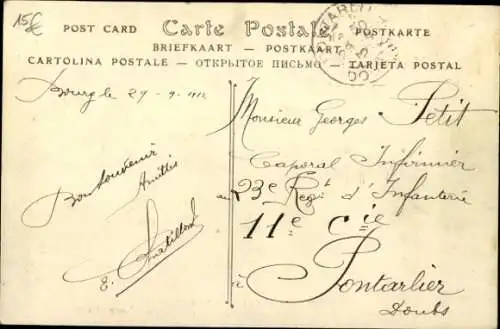 15€
POST CARD Carte Postale POSTKARTE
BRIEFKAART — POSTKAART
CARTOLINA POSTALE — ОТКРЫТОЕ ПИСЬМО — TARJETA POSTAL
Bourg le 29-9-1912
Bon souvenir
Amitiés
E.
Monsieur Georges Petit
Caporal Infirmier
au 23e Regt d'Infanterie
11e Cie
à Pontarlier
Doubs